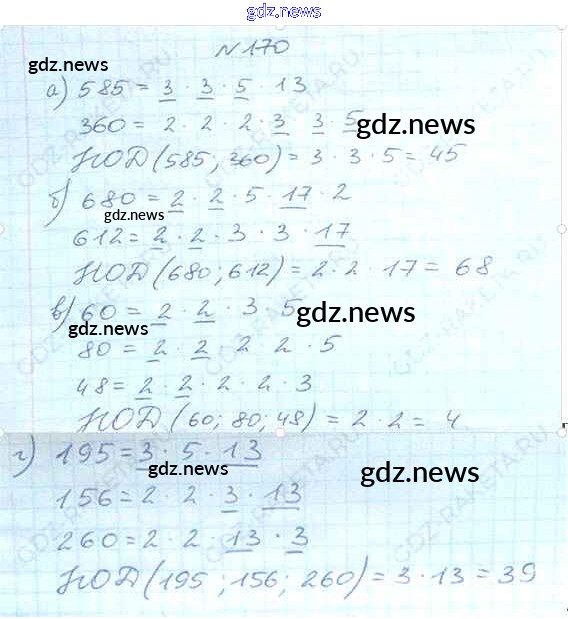 gdz.news
№170
gdz.news
а) 585 = 3 · 3 · 5 · 13
360 = 2 · 2 · 2 · 3 3 · 5
gdz.news
НОД (585; 360) = 3 · 3 · 5 = 45
б) 680 = 2 · 2 · 5 · 17 · 2
gdz.news
612 = 2 · 2 · 3 · 3 · 17
НОД (680; 612) = 2 · 2 · 17 = 68
в) 60 = 2 · 2 · 3 5
gdz.news
gdz.news
80 = 2 · 2 · 2 2 · 5
48 = 2 · 2 · 2 · 2 · 3
НОД (60; 80; 48) = 2 · 2 = 4
г) 195 = 3 · 5 · 13
gdz.news
156 = 2 · 2 · 3 · 13
260 = 2 · 2 · 13 · 3
gdz.news
НОД (195; 156; 260) = 3 · 13 = 39